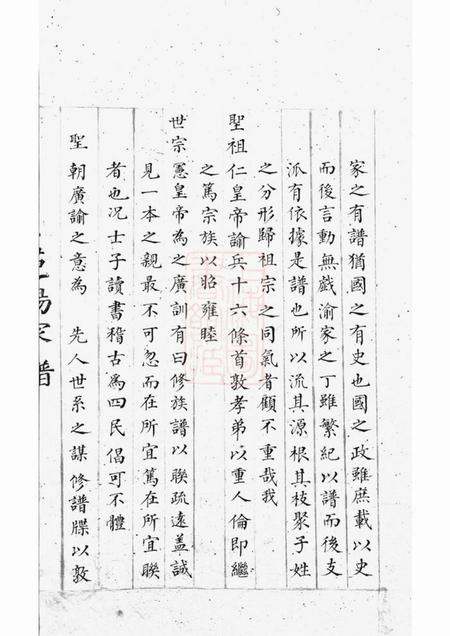 家之有譜猶國之有史也國之政雖庶載以史
而後言動無戲渝家之丁雖繁紀以譜而後支
派有依據是譜也所以流其源根其枝聚子姓
之分形歸祖宗之同氣者顧不重哉我
聖祖仁皇帝諭兵十六條首敦孝弟以重人倫即繼
之篤宗族以昭雍睦
世宗憲皇帝為之廣訓有曰修族譜以聯疏遠蓋誠
見一本之親最不可忽而在所宜篤在所宜聯
者也況士子讀書稽古為四民倡可不體
聖朝廣諭之意為先人世系之謀修譜牒以敦
陽家譜